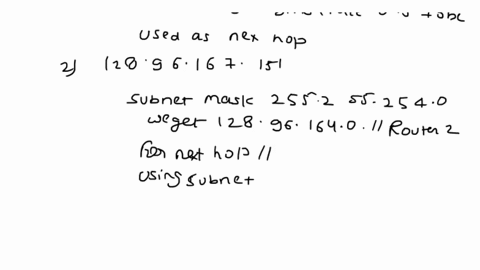 used as nex hop
2) 128.96.167.151
subnet mask 255.2 55.254.0
we get 128.96.164.0. // Router 2
For next hop //
using subnet